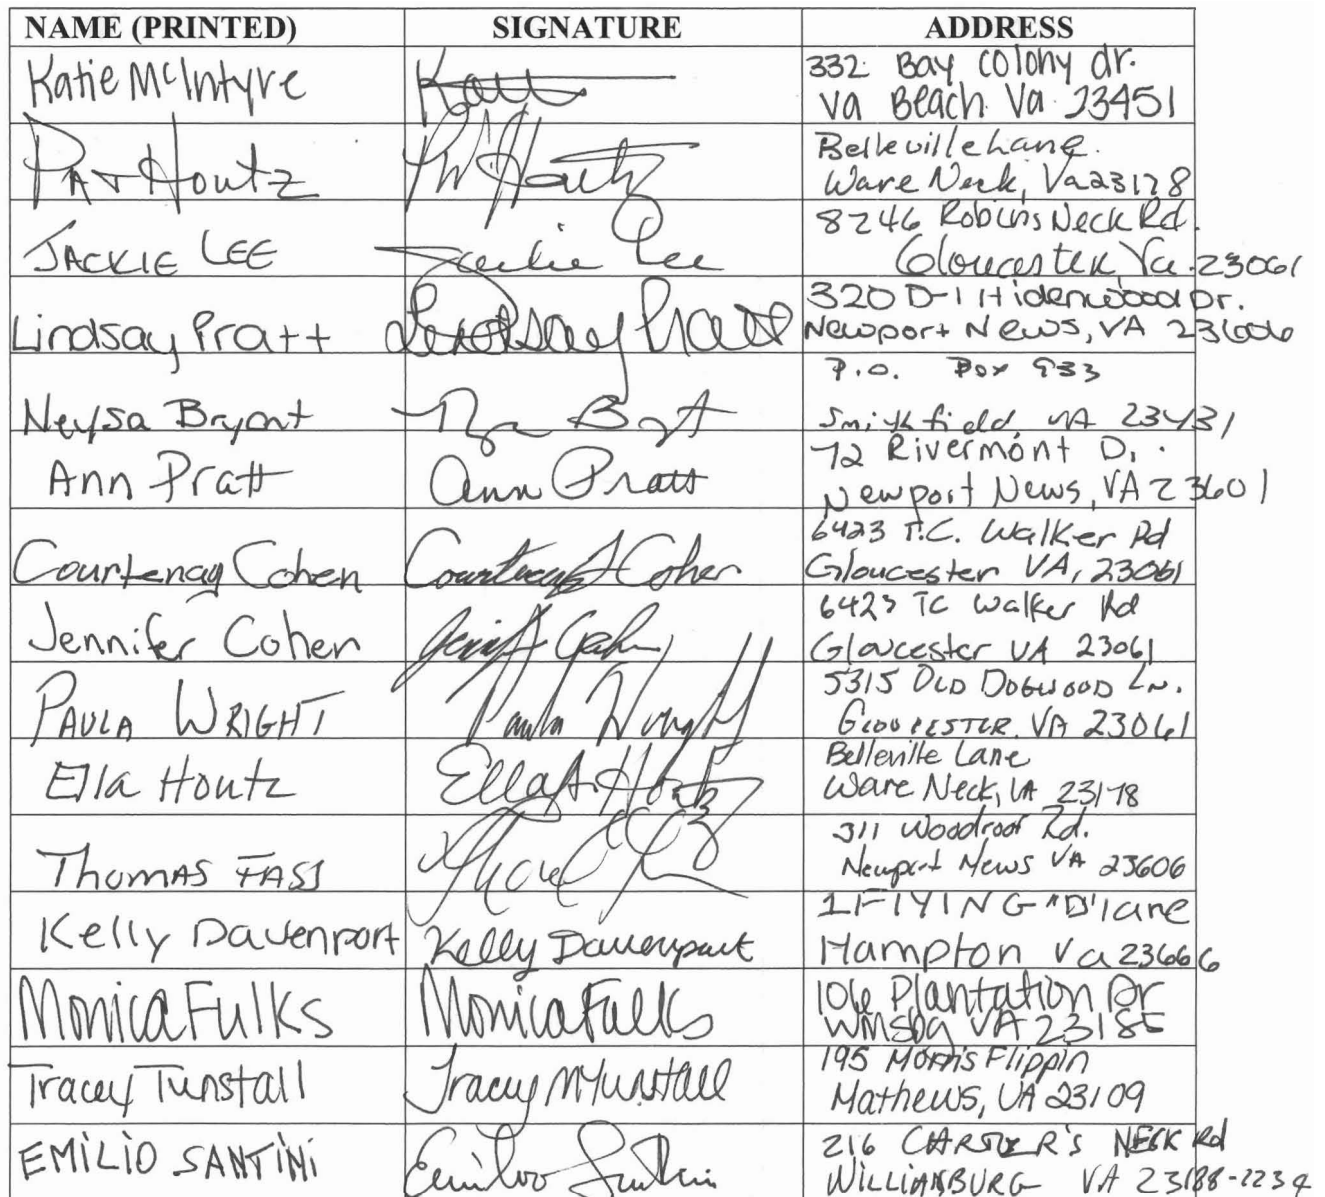 NAME (PRINTED) SIGNATURE ADDRESS
Katie McIntyre 332 Bay Colony dr.
Va Beach Va 23451
PAT Houtz Belleville Lane
Ware Neck, Va 23178
JACKIE LEE Jackie Lee 8246 Robins Neck Rd.
Gloucester, Va. 23061
Lindsay Pratt Lindsay Pratt 320 D-1 Hidenwood Dr.
Newport News, VA 23606
P.O. Box 933
Neysa Bryant Smithfield, VA 23431
Ann Pratt Ann Pratt 72 Rivermont
Newport News, VA 23601
6423 T.C. Walker Rd
Courtenay Cohen Courtenay Cohen Gloucester VA, 23061
6423 TC Walker Rd
Jennifer Cohen Gloucester VA 23061
PAULA WRIGHT Paula Wright 5315 OLD DOGWOOD LN.
GLOUCESTER, VA 23061
Ella Houtz Ella Houtz Belleville Lane
Ware Neck, VA 23178
311 Woodroof Rd.
Thomas FASS Newport News VA 23606
1 FlYING "D" lane
Kelly Davenport Kelly Davenport Hampton Va 23666
Monica Fulks Monica Fulks 106 Plantation Dr
Wmsbg VA 23185
Tracey Tunstall Tracey M Tunstall 195 Morris Flippin
Mathews, VA 23109
EMiLiO SANTiNi Emilio Santini 216 CARTER'S NECK Rd
WILLIAMSBURG VA 23188-2234